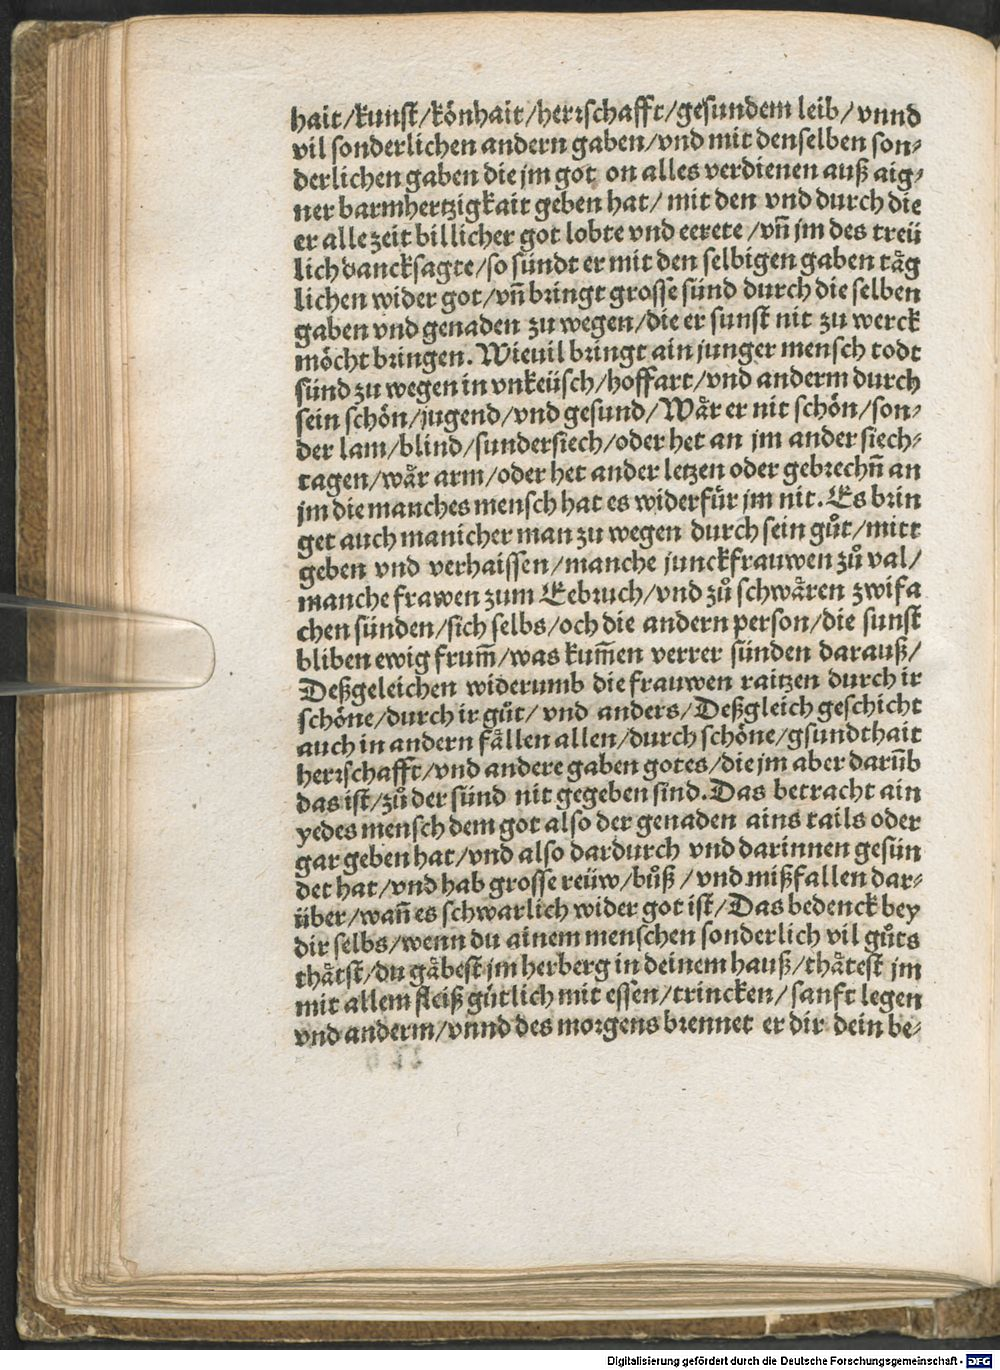 hait/kunst/könhait/herrschafft/gesundem leib/vnnd
vil sonderlichen andern gaben/vnd mit denselben son-
derlichen gaben die jm got on alles verdienen auß aig-
ner barmhertzigkait geben hat/ mit den vnd durch die
er alle zeit billicher got lobte vnd eerete /vñ jm des treü
lich dancksagte/so sündt er mit den selbigen gaben täg
lichen wider got/vñ bringt grosse sünd durch die selben
gaben vnd genaden zu wegen/die er sunst nit zu werck
möcht bringen. Wieuil bringt ain junger mensch todt
sünd zu wegen in vnkeüsch/hoffart/vnd anderm durch
sein schön/jugend/vnd gesund/Wår er nit schön/son-
der lam/blind/sundersiech/oder het an jm ander siech-
tagen/wår arm/oder het ander letzen oder gebrechñ an
jm die manches mensch hat es widerfür jm nit. Es brin
get auch manicher man zu wegen durch sein gůt/mitt
geben vnd verhaissen/manche junckfrauwen zů val/
manche frawen zum Eebruch/vnd zů schwåren zwifa
chen sünden/sich selbs/och die andern person/die sunst
bliben ewig frum̃/was kum̃en verrer sünden darauß/
Deßgeleichen widerumb die frauwen raitzen durch ir
schöne/durch ir gůt/ vnd anders/Deßgleich geschicht
auch in andern fållen allen/durch schöne/gsundthait
herrschafft/vnd andere gaben gotes/die jm aber darũb
das ist/zů der sünd nit gegeben sind. Das betracht ain
yedes mensch dem got also der genaden ains tails oder
gar geben hat/vnd also dardurch vnd darinnen gesün
det hat/vnd hab grosse reüw/bůß / vnd mißfallen dar-
über/wañ es schwarlich wider got ist/Das bedenck bey
dir selbs/wenn du ainem menschen sonderlich vil gůts
thåtst/du gåbest jm herberg in deinem hauß/thåtest jm
mit allem fleiß gütlich mit essen/trincken/ sanft legen
vnd anderm/vnnd des morgens brennet er dir dein be-
Digitalisierung gefördert durch die Deutsche Forschungsgemeinschaft - DFG